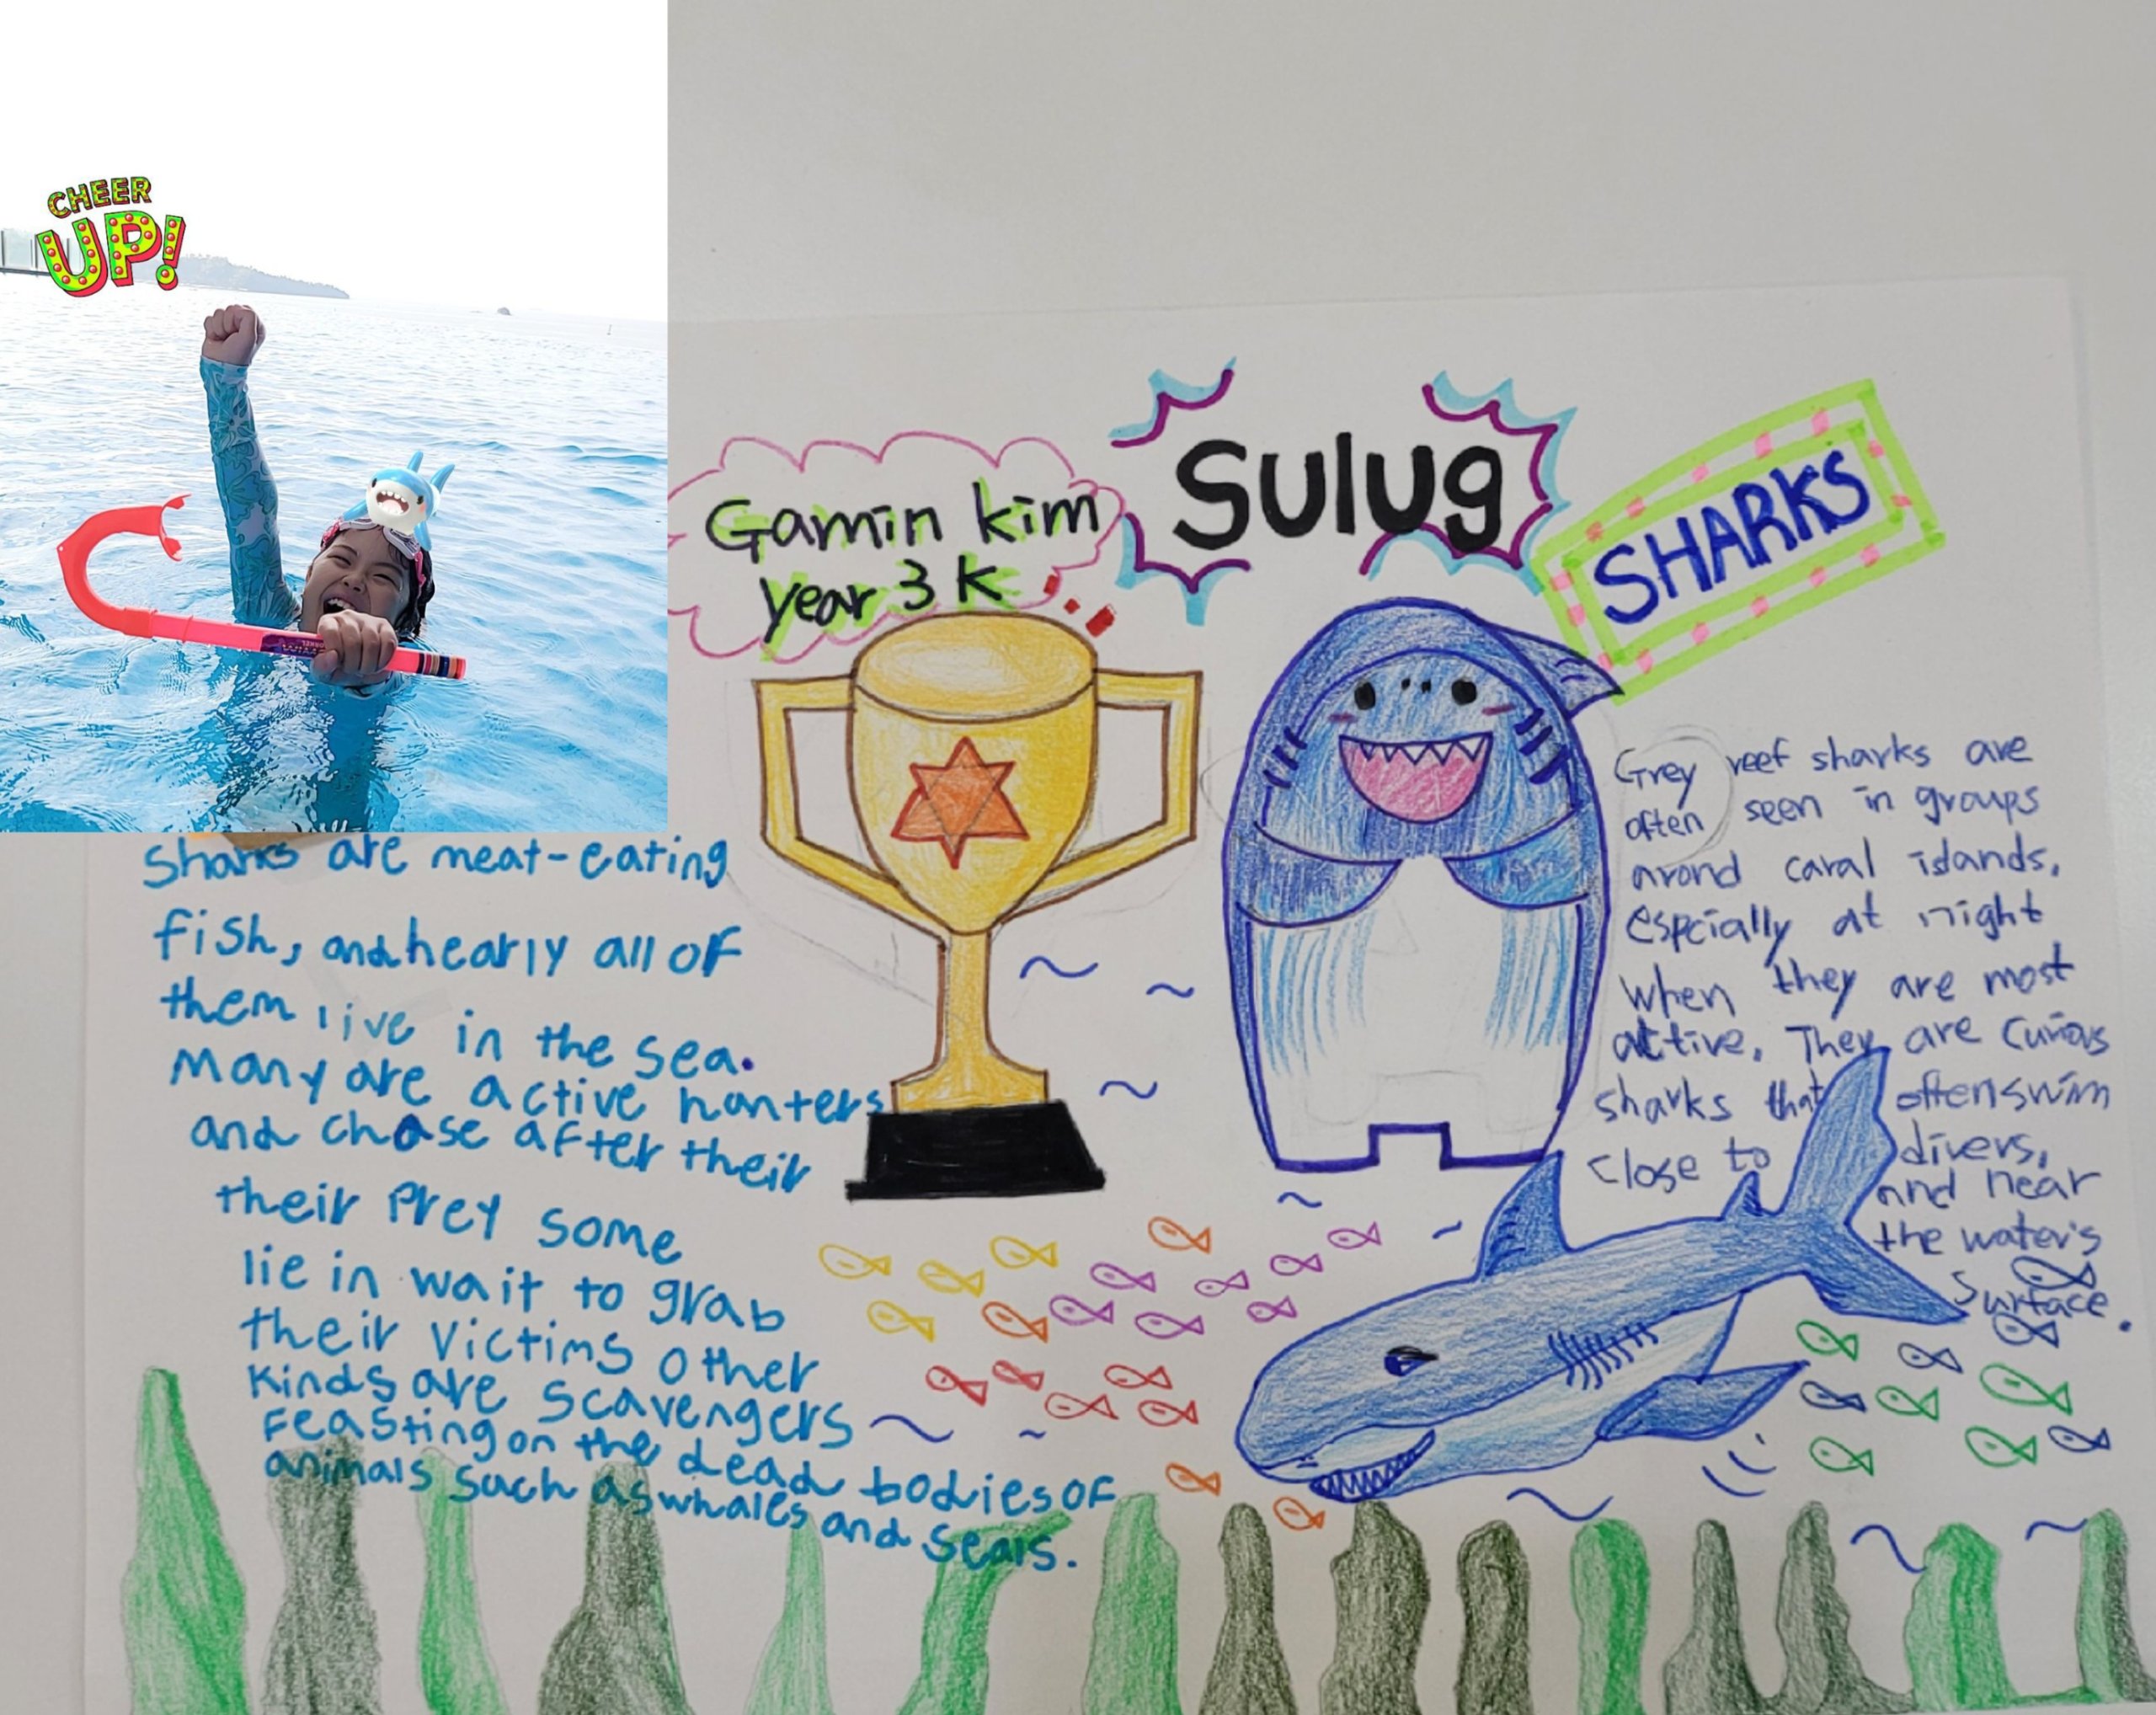 CHEER
UP!
Gamin kim
year 3 K
Sulug
SHARKS
Sharks are meat-eating
fish, and hearly all of
them live in the sea.
Many are active hanters
and chase after their
their Prey some
lie in wait to grab
their Victims other
kinds are scavengers
Feasting on the dead bodies of
animals such as whales and seals.
Grey reef sharks are
often seen in groups
arond caral islands,
espcially at night
when they are most
active. They are curious
sharks that often swim
close to divers,
and near
the water's
surface.